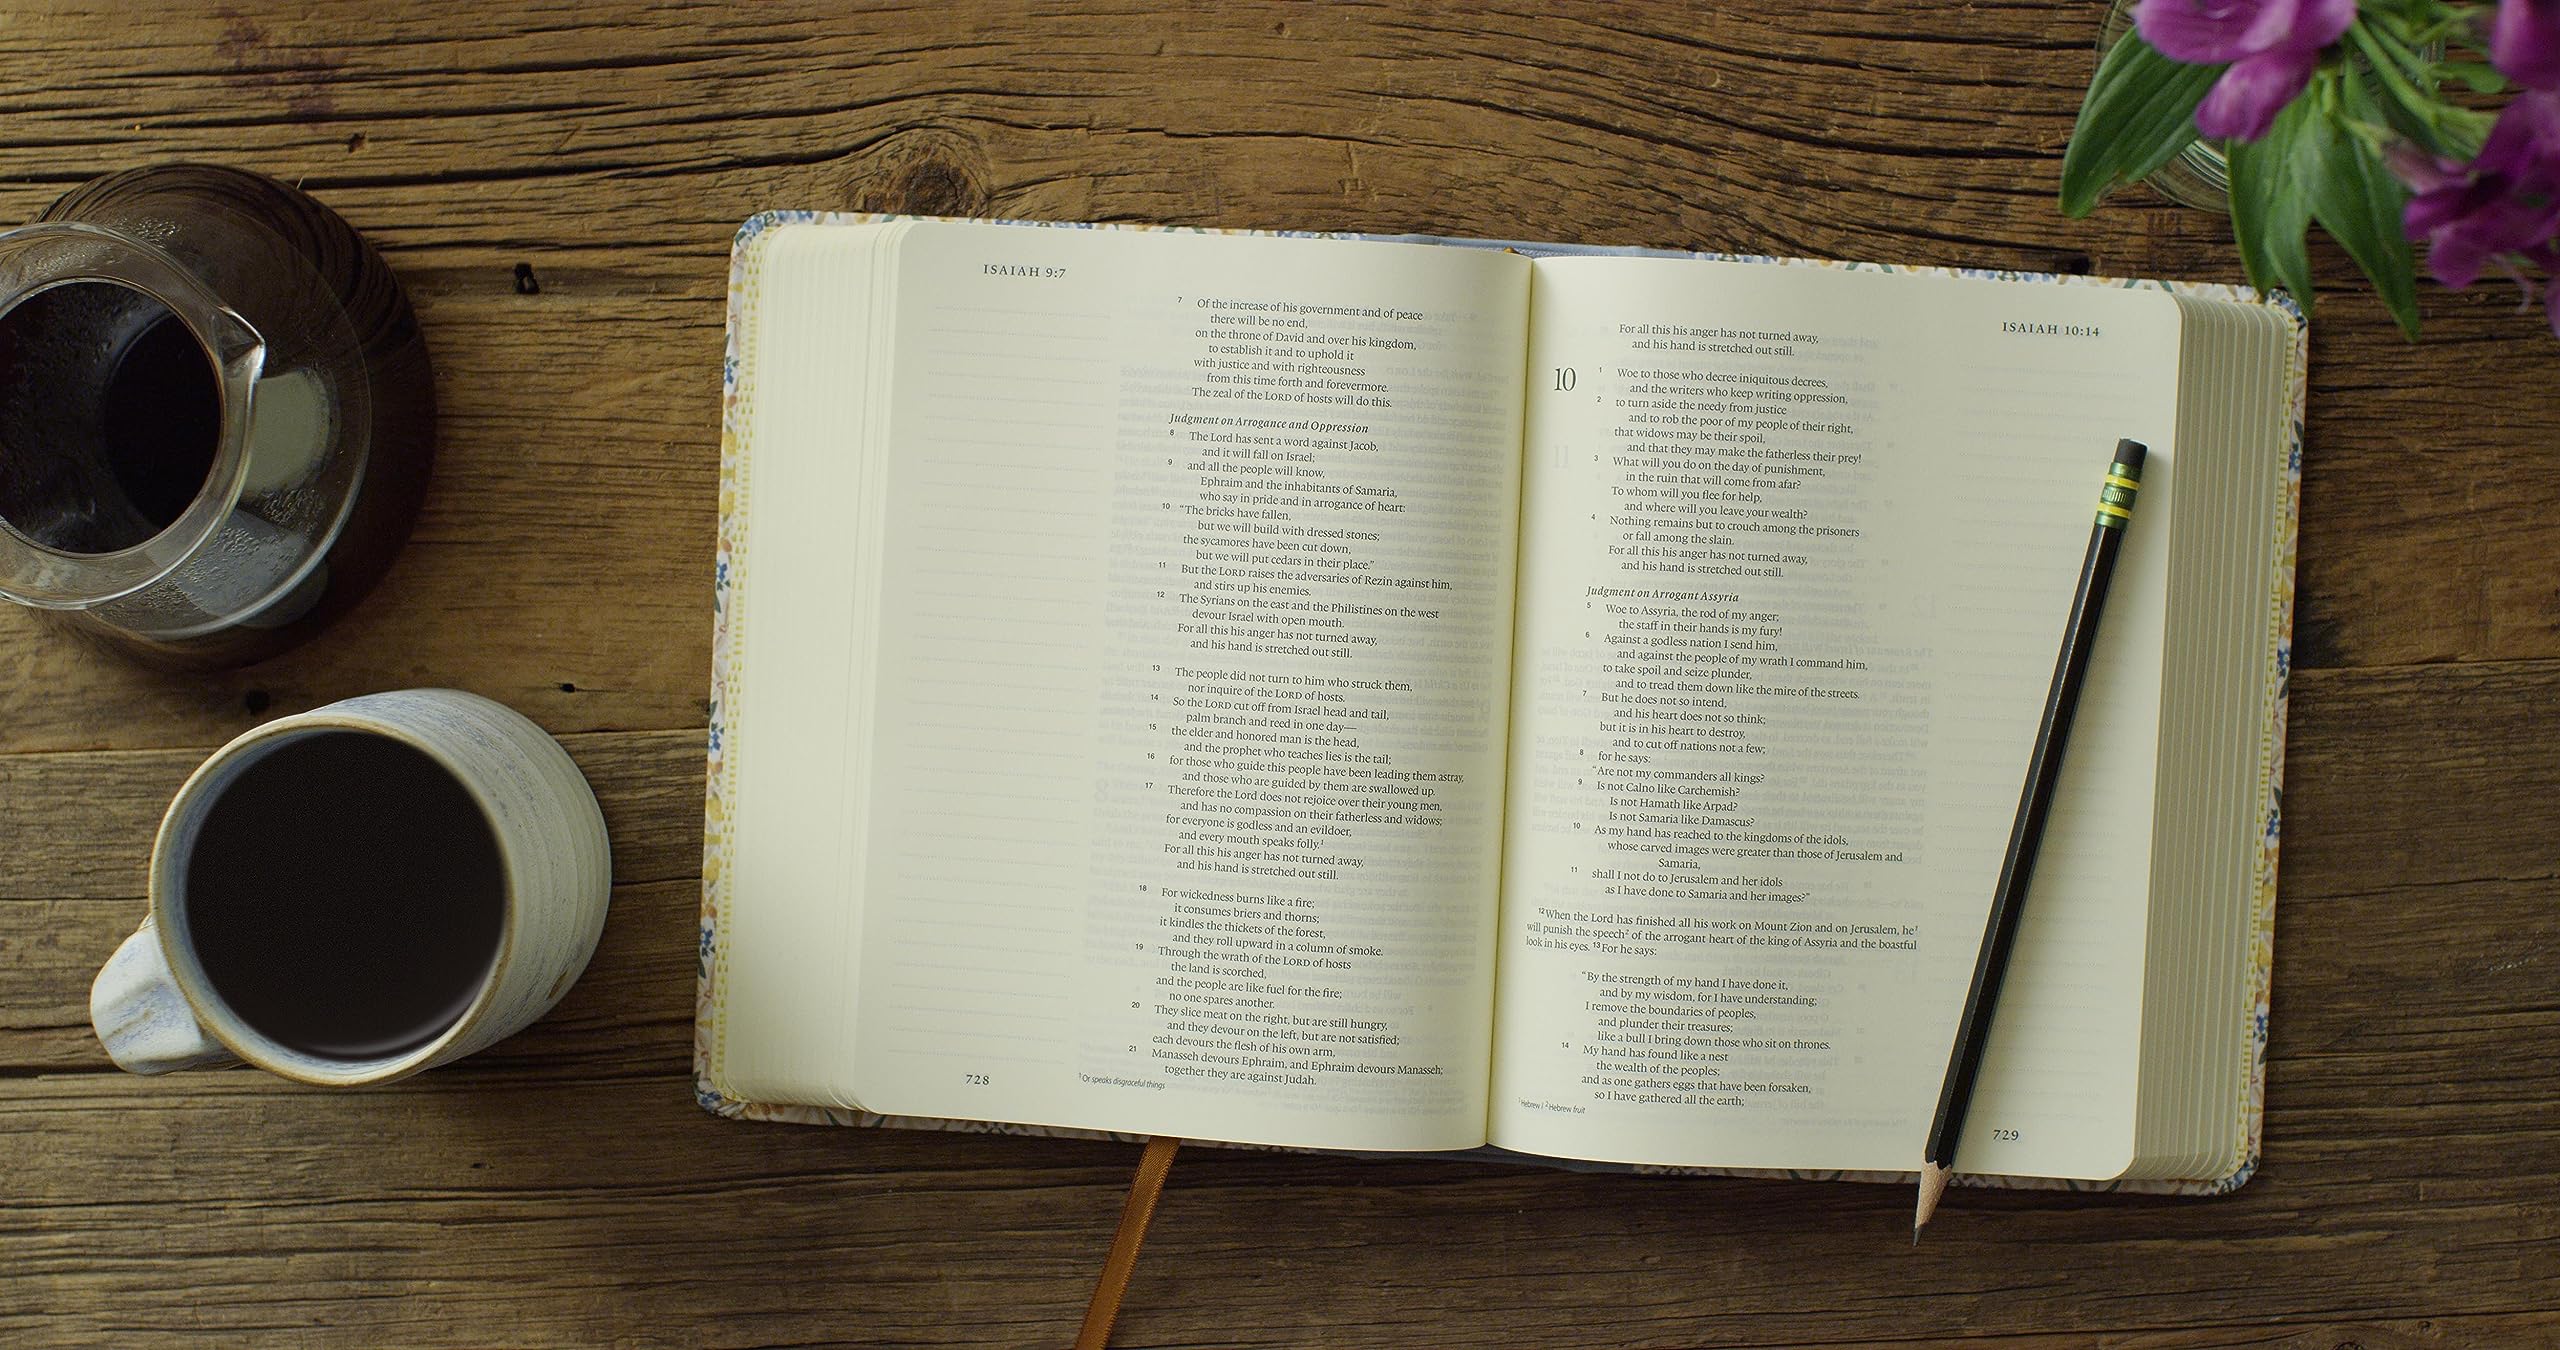 ISAIAH 9:7
7 Of the increase of his government and of peace
there will be no end,
on the throne of David and over his kingdom,
to establish it and to uphold it
with justice and with righteousness
from this time forth and forevermore.
The zeal of the LORD of hosts will do this.
Judgment on Arrogance and Oppression
8 The Lord has sent a word against Jacob,
and it will fall on Israel;
9 and all the people will know,
Ephraim and the inhabitants of Samaria,
who say in pride and in arrogance of heart:
10 “The bricks have fallen,
but we will build with dressed stones;
the sycamores have been cut down,
but we will put cedars in their place.”
11 But the LORD raises the adversaries of Rezin against him,
and stirs up his enemies.
12 The Syrians on the east and the Philistines on the west
devour Israel with open mouth.
For all this his anger has not turned away,
and his hand is stretched out still.
13 The people did not turn to him who struck them,
nor inquire of the LORD of hosts.
14 So the LORD cut off from Israel head and tail,
palm branch and reed in one day—
15 the elder and honored man is the head,
and the prophet who teaches lies is the tail;
16 for those who guide this people have been leading them astray,
and those who are guided by them are swallowed up.
17 Therefore the Lord does not rejoice over their young men,
and has no compassion on their fatherless and widows;
for everyone is godless and an evildoer,
and every mouth speaks folly.1
For all this his anger has not turned away,
and his hand is stretched out still.
18 For wickedness burns like a fire;
it consumes briers and thorns;
it kindles the thickets of the forest,
and they roll upward in a column of smoke.
19 Through the wrath of the LORD of hosts
the land is scorched,
and the people are like fuel for the fire;
no one spares another.
20 They slice meat on the right, but are still hungry,
and they devour on the left, but are not satisfied;
each devours the flesh of his own arm,
21 Manasseh devours Ephraim, and Ephraim devours Manasseh;
together they are against Judah.
1 Or speaks disgraceful things
728
ISAIAH 10:14
For all this his anger has not turned away,
and his hand is stretched out still.
10 1 Woe to those who decree iniquitous decrees,
and the writers who keep writing oppression,
2 to turn aside the needy from justice
and to rob the poor of my people of their right,
that widows may be their spoil,
and that they may make the fatherless their prey!
3 What will you do on the day of punishment,
in the ruin that will come from afar?
To whom will you flee for help,
and where will you leave your wealth?
4 Nothing remains but to crouch among the prisoners
or fall among the slain.
For all this his anger has not turned away,
and his hand is stretched out still.
Judgment on Arrogant Assyria
5 Woe to Assyria, the rod of my anger;
the staff in their hands is my fury!
6 Against a godless nation I send him,
and against the people of my wrath I command him,
to take spoil and seize plunder,
and to tread them down like the mire of the streets.
7 But he does not so intend,
and his heart does not so think;
but it is in his heart to destroy,
and to cut off nations not a few;
8 for he says:
“Are not my commanders all kings?
9 Is not Calno like Carchemish?
Is not Hamath like Arpad?
Is not Samaria like Damascus?
10 As my hand has reached to the kingdoms of the idols,
whose carved images were greater than those of Jerusalem and
Samaria,
11 shall I not do to Jerusalem and her idols
as I have done to Samaria and her images?”
12 When the Lord has finished all his work on Mount Zion and on Jerusalem, he1
will punish the speech2 of the arrogant heart of the king of Assyria and the boastful
look in his eyes. 13 For he says:
“By the strength of my hand I have done it,
and by my wisdom, for I have understanding;
I remove the boundaries of peoples,
and plunder their treasures;
like a bull I bring down those who sit on thrones.
14 My hand has found like a nest
the wealth of the peoples;
and as one gathers eggs that have been forsaken,
so I have gathered all the earth;
1 Hebrew I 2 Hebrew fruit
729